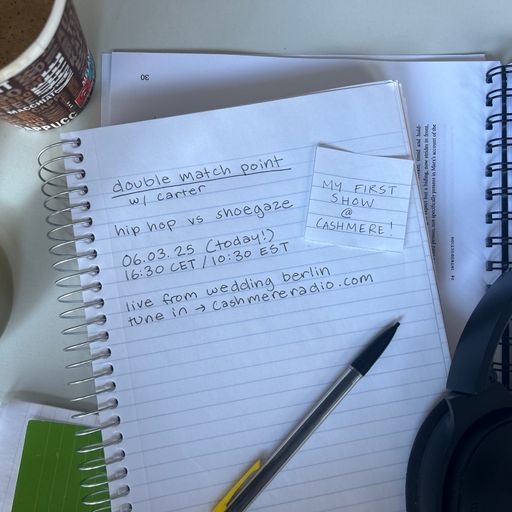 30
double match point
w/ carter
hip hop vs shoegaze
06.03.25 (today!)
16:30 CET / 10:30 EST
live from wedding berlin
tune in → cashmereradio.com
MY FIRST
SHOW
@
CASHMERE!